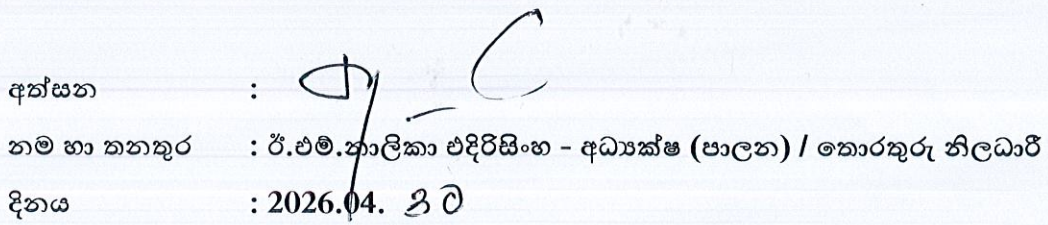 අත්සන :
නම හා තනතුර : ඊ.එම්.තාලිකා එදිරිසිංහ - අධ්‍යක්ෂ (පාලන) / තොරතුරු නිලධාරී
දිනය : 2026.04. 30